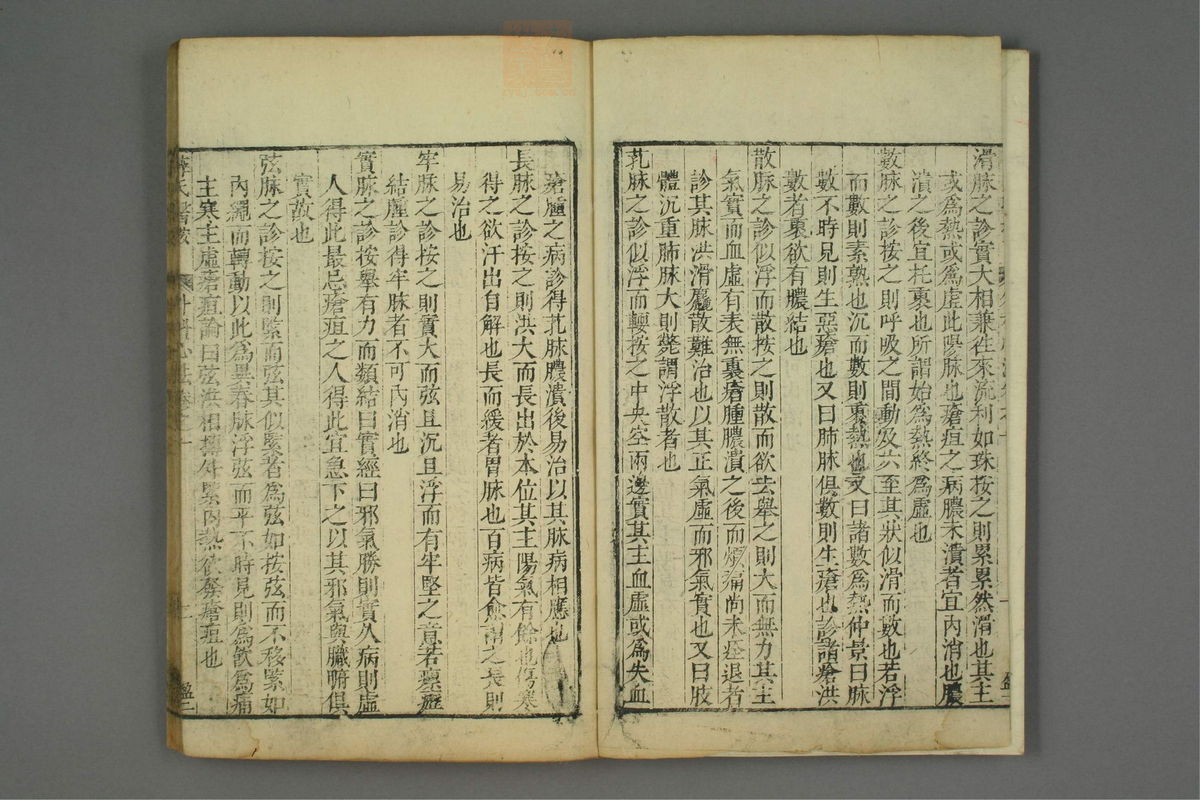 滑脉之診實大相兼徃來流利如珠按之則累累然滑也其主
或爲熱或爲虛此陽脉也瘡疽之病膿未潰者宜內消也膿
潰之後宜托裏也所謂始爲熱終爲虛也
數脉之診按之則呼吸之間動及六至其狀似滑而數也若浮
而數則表熱也沉而數則裏熱也又曰諸數爲熱仲景曰脉
數不時見則生惡瘡也又曰肺脉俱數則生瘡也診諸瘡洪
數者裏欲有膿結也
散脉之診似浮而散按之則散而欲去舉之則大而無力其主
氣實而血虛有表無裏瘡腫膿潰之後而煩痛尚未痊退者
診其脉洪滑麤散難治也以其正氣虛而邪氣實也又曰肢
體沉重肺脉大則斃謂浮散者也
芤脉之診似浮而軟按之中央空兩邊實其主血虛或爲失血
瘡腫之病診得芤脉膿潰後易治以其脉病相應也
長脉之診按之則洪大而長出於本位其主陽氣有餘也傷寒
得之欲汗出自解也長而緩者胃脉也百病皆愈謂之長則
易治也
牢脉之診按之則實大而弦且沉且浮而有牢堅之意若瘰癧
結腫診得牢脉者不可內消也
實脉之診按舉有力而類結曰實經曰邪氣勝則實久病則虛
人得此最忌瘡疽之人得此宜急下之以其邪氣與臟腑俱
實故也
弦脉之診按之則緊而弦其似緊者爲弦如按弦而不移緊如
內繩而轉動以此爲異春脉浮弦而平不時見則爲飲爲痛
主寒主虛瘡疽論曰弦洪相摶外緊內熱欲發瘡疽也